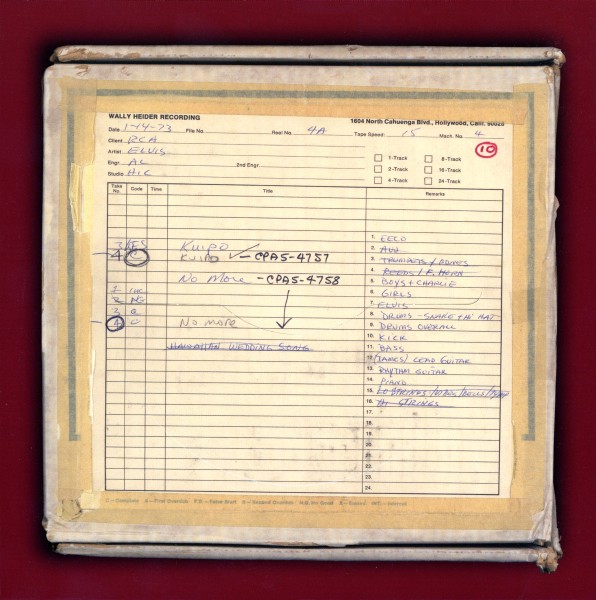 WALLY HEIDER RECORDING
1604 North Cahuenga Blvd., Hollywood, Calif. 90028
Date 1-14-73 File No. Reel No. 4A Tape Speed: 15 Mach. No. 4
Client RCA
10
Artist ELVIS
Engr. AL 2nd Engr.
Studio HIC
1-Track 8-Track
2-Track 16-Track
4-Track 24-Track
Take No. Code Time Title Remarks
1. ECCO
2. AUD
3. TRUMPETS / BONES
4. REEDS / F. HORN
5. BOYS + CHARLIE
6. GIRLS
7. ELVIS
8. DRUMS - SNARE + HI HAT
9. DRUMS OVERALL
10. KICK
11. BASS
12. (JAMES) LEAD GUITAR
13. RHYTHM GUITAR
14. PIANO
15. LO STRINGS / VIBES / BELLS /
16. HI STRINGS
17.
18.
19.
20.
21.
22.
23.
24.
3 KUIPO
4 C KUIPO - CPA5-4757
NO MORE - CPA5-4758
1
2
3
4 C NO MORE
HAWAIIAN WEDDING SONG